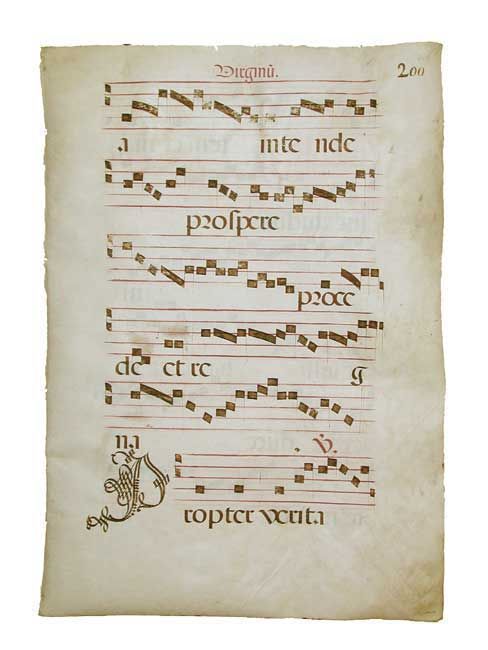 Virginū. 200
a inte nde
prospere
proce
de et re g
na ℣.
Propter verita